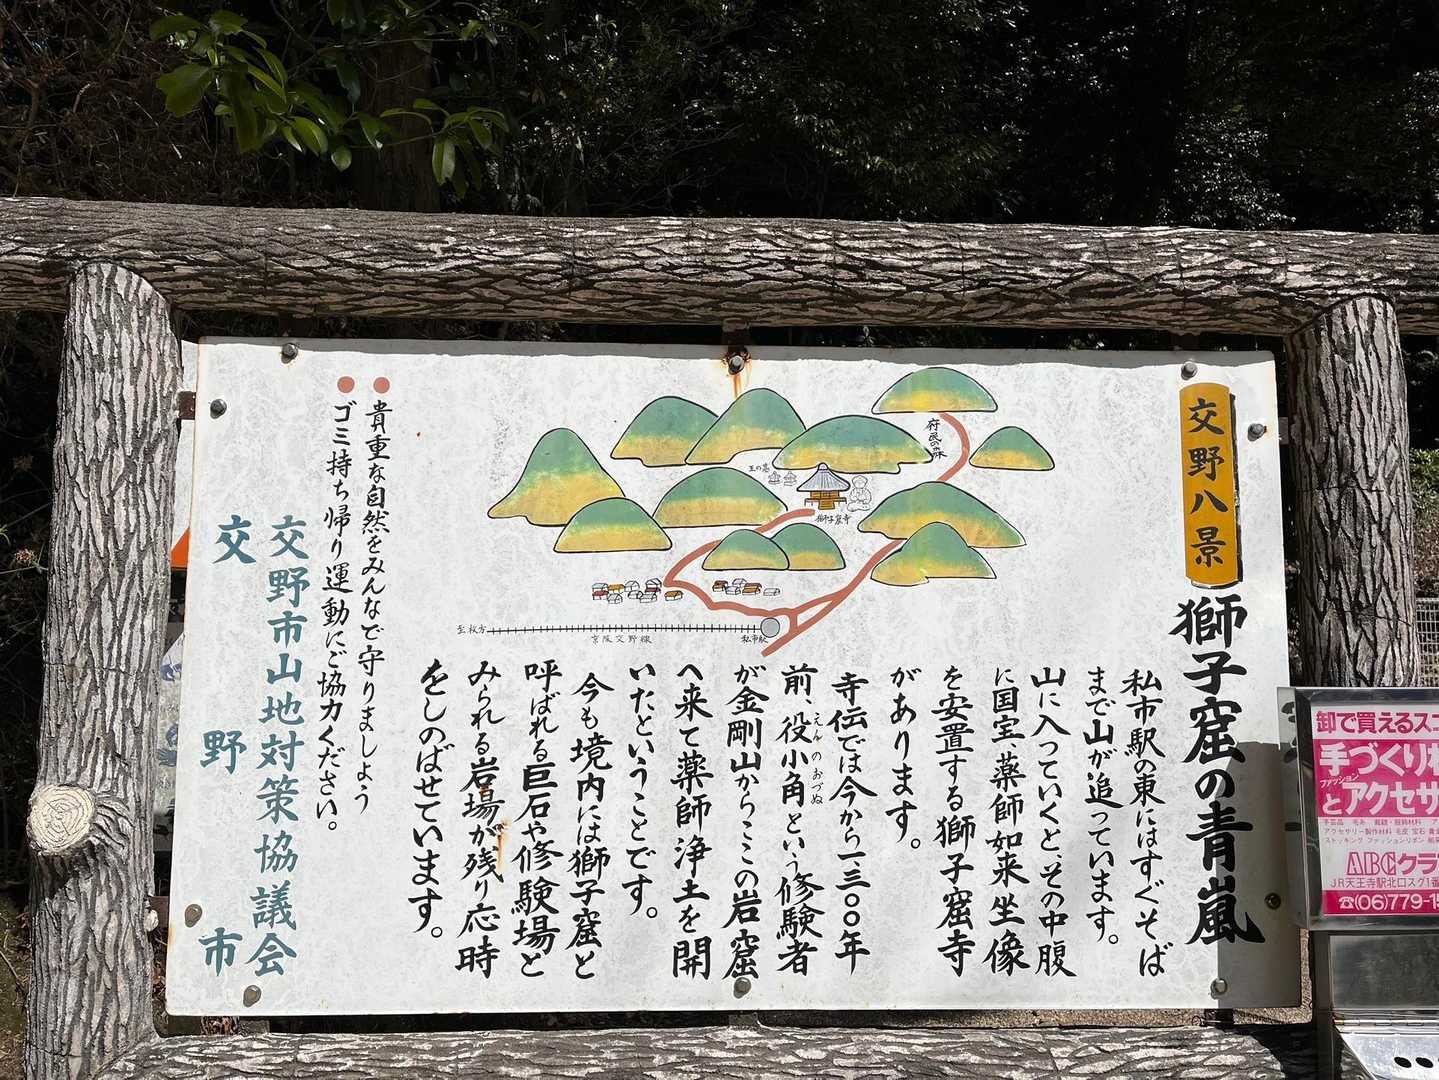 交野八景
獅子窟の青嵐
私市駅の東にはすぐそば
まで山が迫っています。
山に入っていくと、その中腹
に国宝、薬師如来坐像
を安置する獅子窟寺
があります。
寺伝では今から一三〇〇年
前、役小角という修験者
えんのおづぬ
が金剛山からここの岩窟
へ来て薬師浄土を開
いたということです。
今も境内には獅子窟と
呼ばれる巨石や修験場と
みられる岩場が残り応時
をしのばせています。
府民の森
王の墓
獅子窟寺
至枚方
京阪交野線
私市駅
貴重な自然をみんなで守りましょう
ゴミ持ち帰り運動にご協力ください。
交野市山地対策協議会
交野市
卸で買えるスコ
手づくり
ファッション
とアクセサ
ABCクラ
JR天王寺駅北口スグ1番
☎(06)779-15